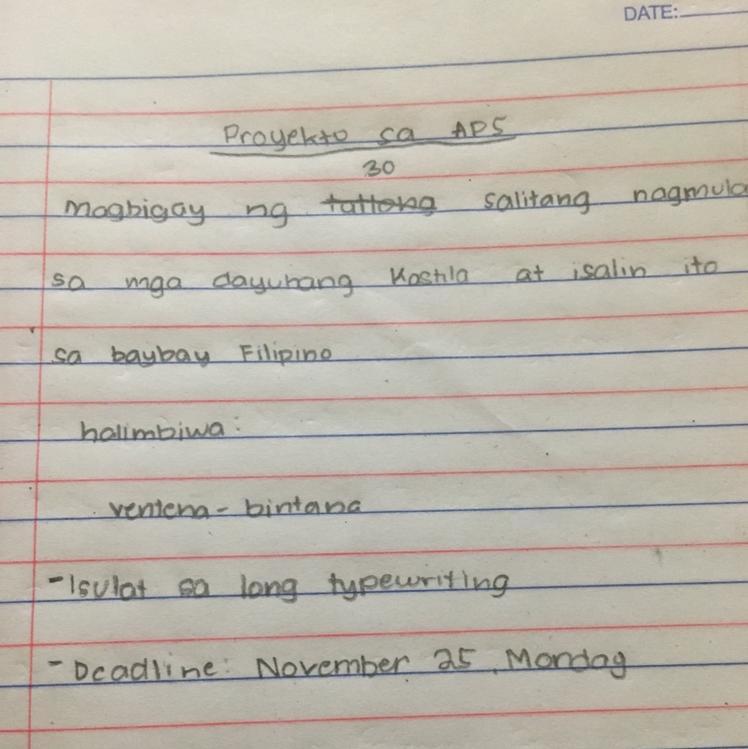 DATE:
Proyekto sa AP5
30
Magbigay ng tatlong salitang nagmula
sa mga dayuhang Kastila at isalin ito
sa baybay Filipino
halimbiwa:
ventena - bintana
- Isulat sa long typewriting
- Deadline: November 25, Monday